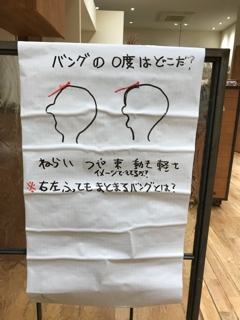 バングの 0度はどこだ?
ねらい つや 束 動き 軽さ
イメージできてるか?
※右左ふっても まとまるバングとは?